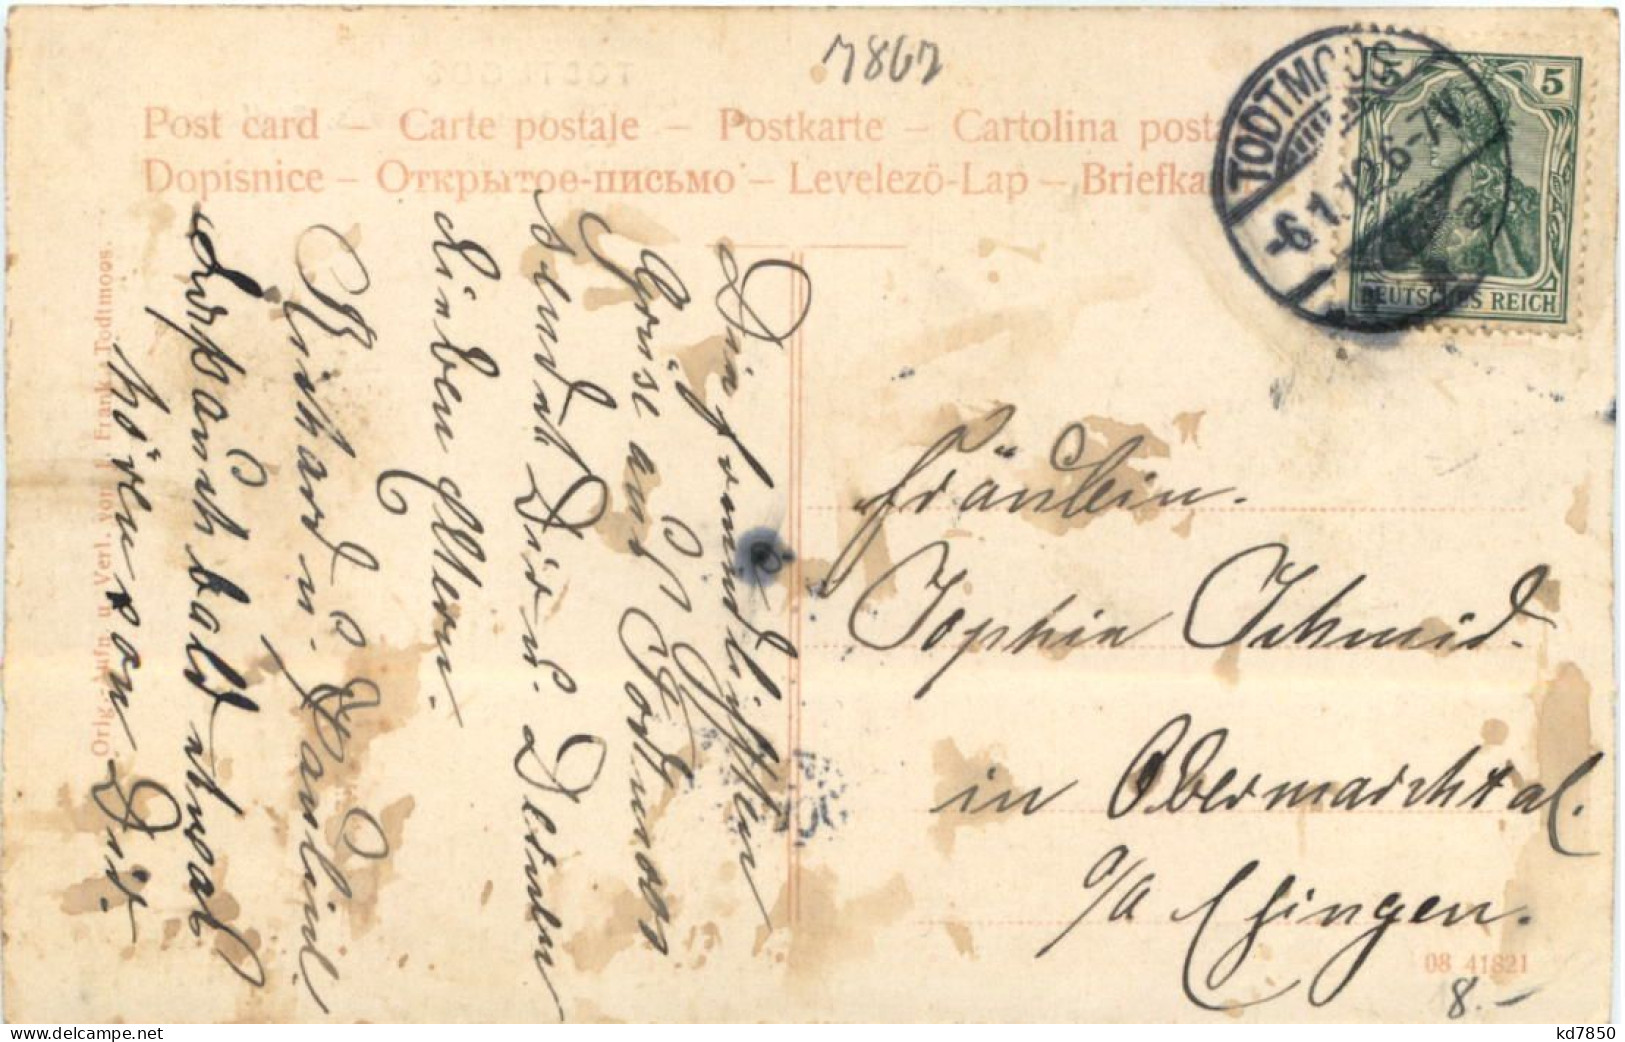 7867
Post card – Carte postale – Postkarte – Cartolina posta
Dopisnice – Открытое-письмо – Levelezö-Lap – Briefka
TODTMOOS
-6.1.12.6-7 V.
5
DEUTSCHES REICH
Orig.-Aufn. u. Verl. von Frank Todtmoos.
Die freundlichsten
Grüße aus Todtmoos
sendet Dir u. Deinen
lieben Eltern.
Richard u. Pauline
bald einmal
hören von Dir.
Fräulein.
Sophie Schmid.
in Obermarchtal.
o/a Ehingen.
08 41821
8.-
www.delcampe.net
kd7850